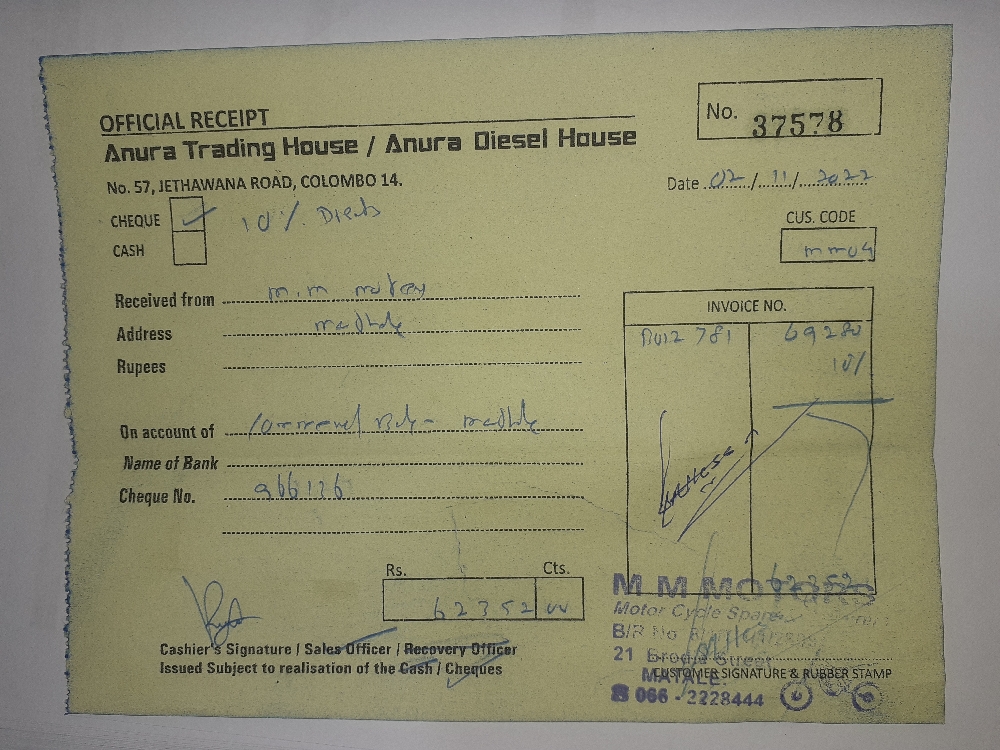 OFFICIAL RECEIPT
Anura Trading House / Anura Diesel House
No. 57, JETHAWANA ROAD, COLOMBO 14.
No. 37578
Date 02/11/2022
CHEQUE ✓ 10%
CASH
CUS. CODE
mm04
Received from m.m
Address
Rupees
INVOICE NO.
781 69280
10%
On account of
Name of Bank
Cheque No. 966126
Rs. Cts.
62352 00
62352
Cashier's Signature / Sales Officer / Recovery Officer
Issued Subject to realisation of the Cash / Cheques
M M MOTORS
Motor Cycle Spares
B/R No
21
MATALE.
CUSTOMER SIGNATURE & RUBBER STAMP
☎ 066 - 2228444